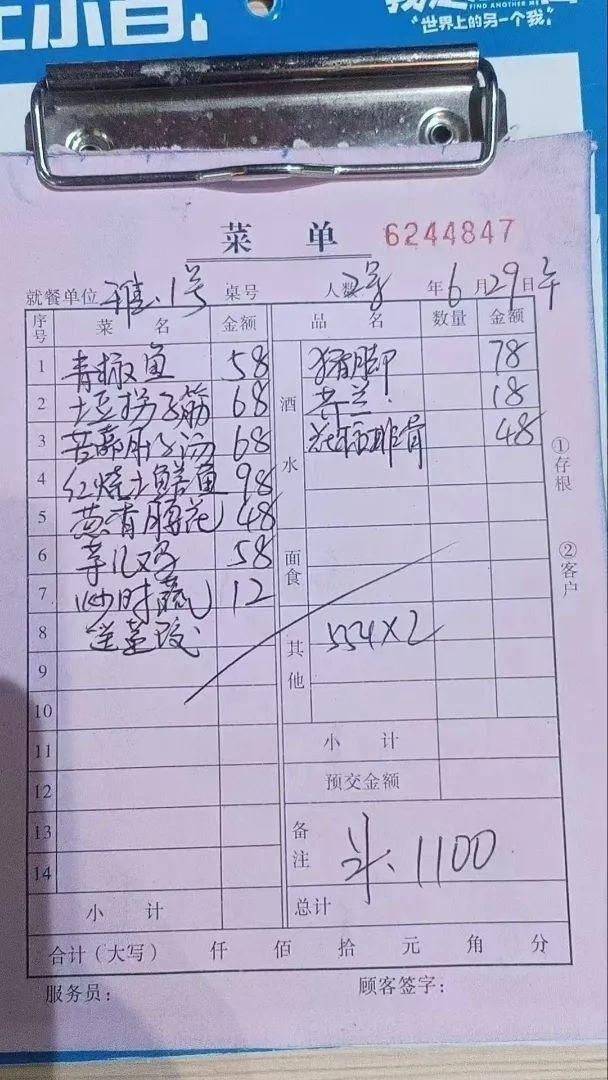 FIND ANOTHER ME
“世界上的另一个我”
菜 单
6244847
就餐单位 雅.1号 桌号 人数2号 年6月29日午
序号 菜 名 金额 品 名 数量 金额
1 青椒鱼 58 猪脚 78
2 土豆拐子筋 68 酒水 18
3 苦 汤 68 排骨 48
4 红烧土鳝鱼 98
5 葱香腰花 48
6 芋儿鸡 58 面食
7 炒时蔬 12
8 送 其他 554×2
9
10
11 小 计
12 预交金额
13 备注 1100
14
小 计 总计
合计（大写） 仟 佰 拾 元 角 分
服务员： 顾客签字：
①存根
②客户